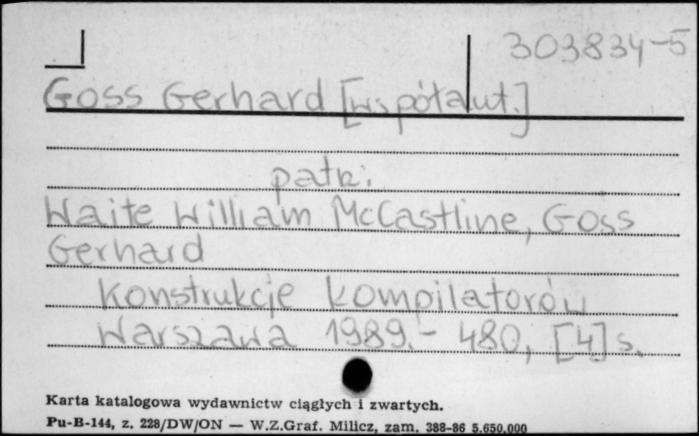 303834-5
Goss Gerhard [współaut.]
patrz:
Waite William McCastline, Goss
Gerhard
Konstrukcje kompilatorów
Warszawa 1989.- 480, [4] s.
Karta katalogowa wydawnictw ciągłych i zwartych.
Pu-B-144, z. 228/DW/ON — W.Z.Graf. Milicz, zam. 388-86 5.650.000